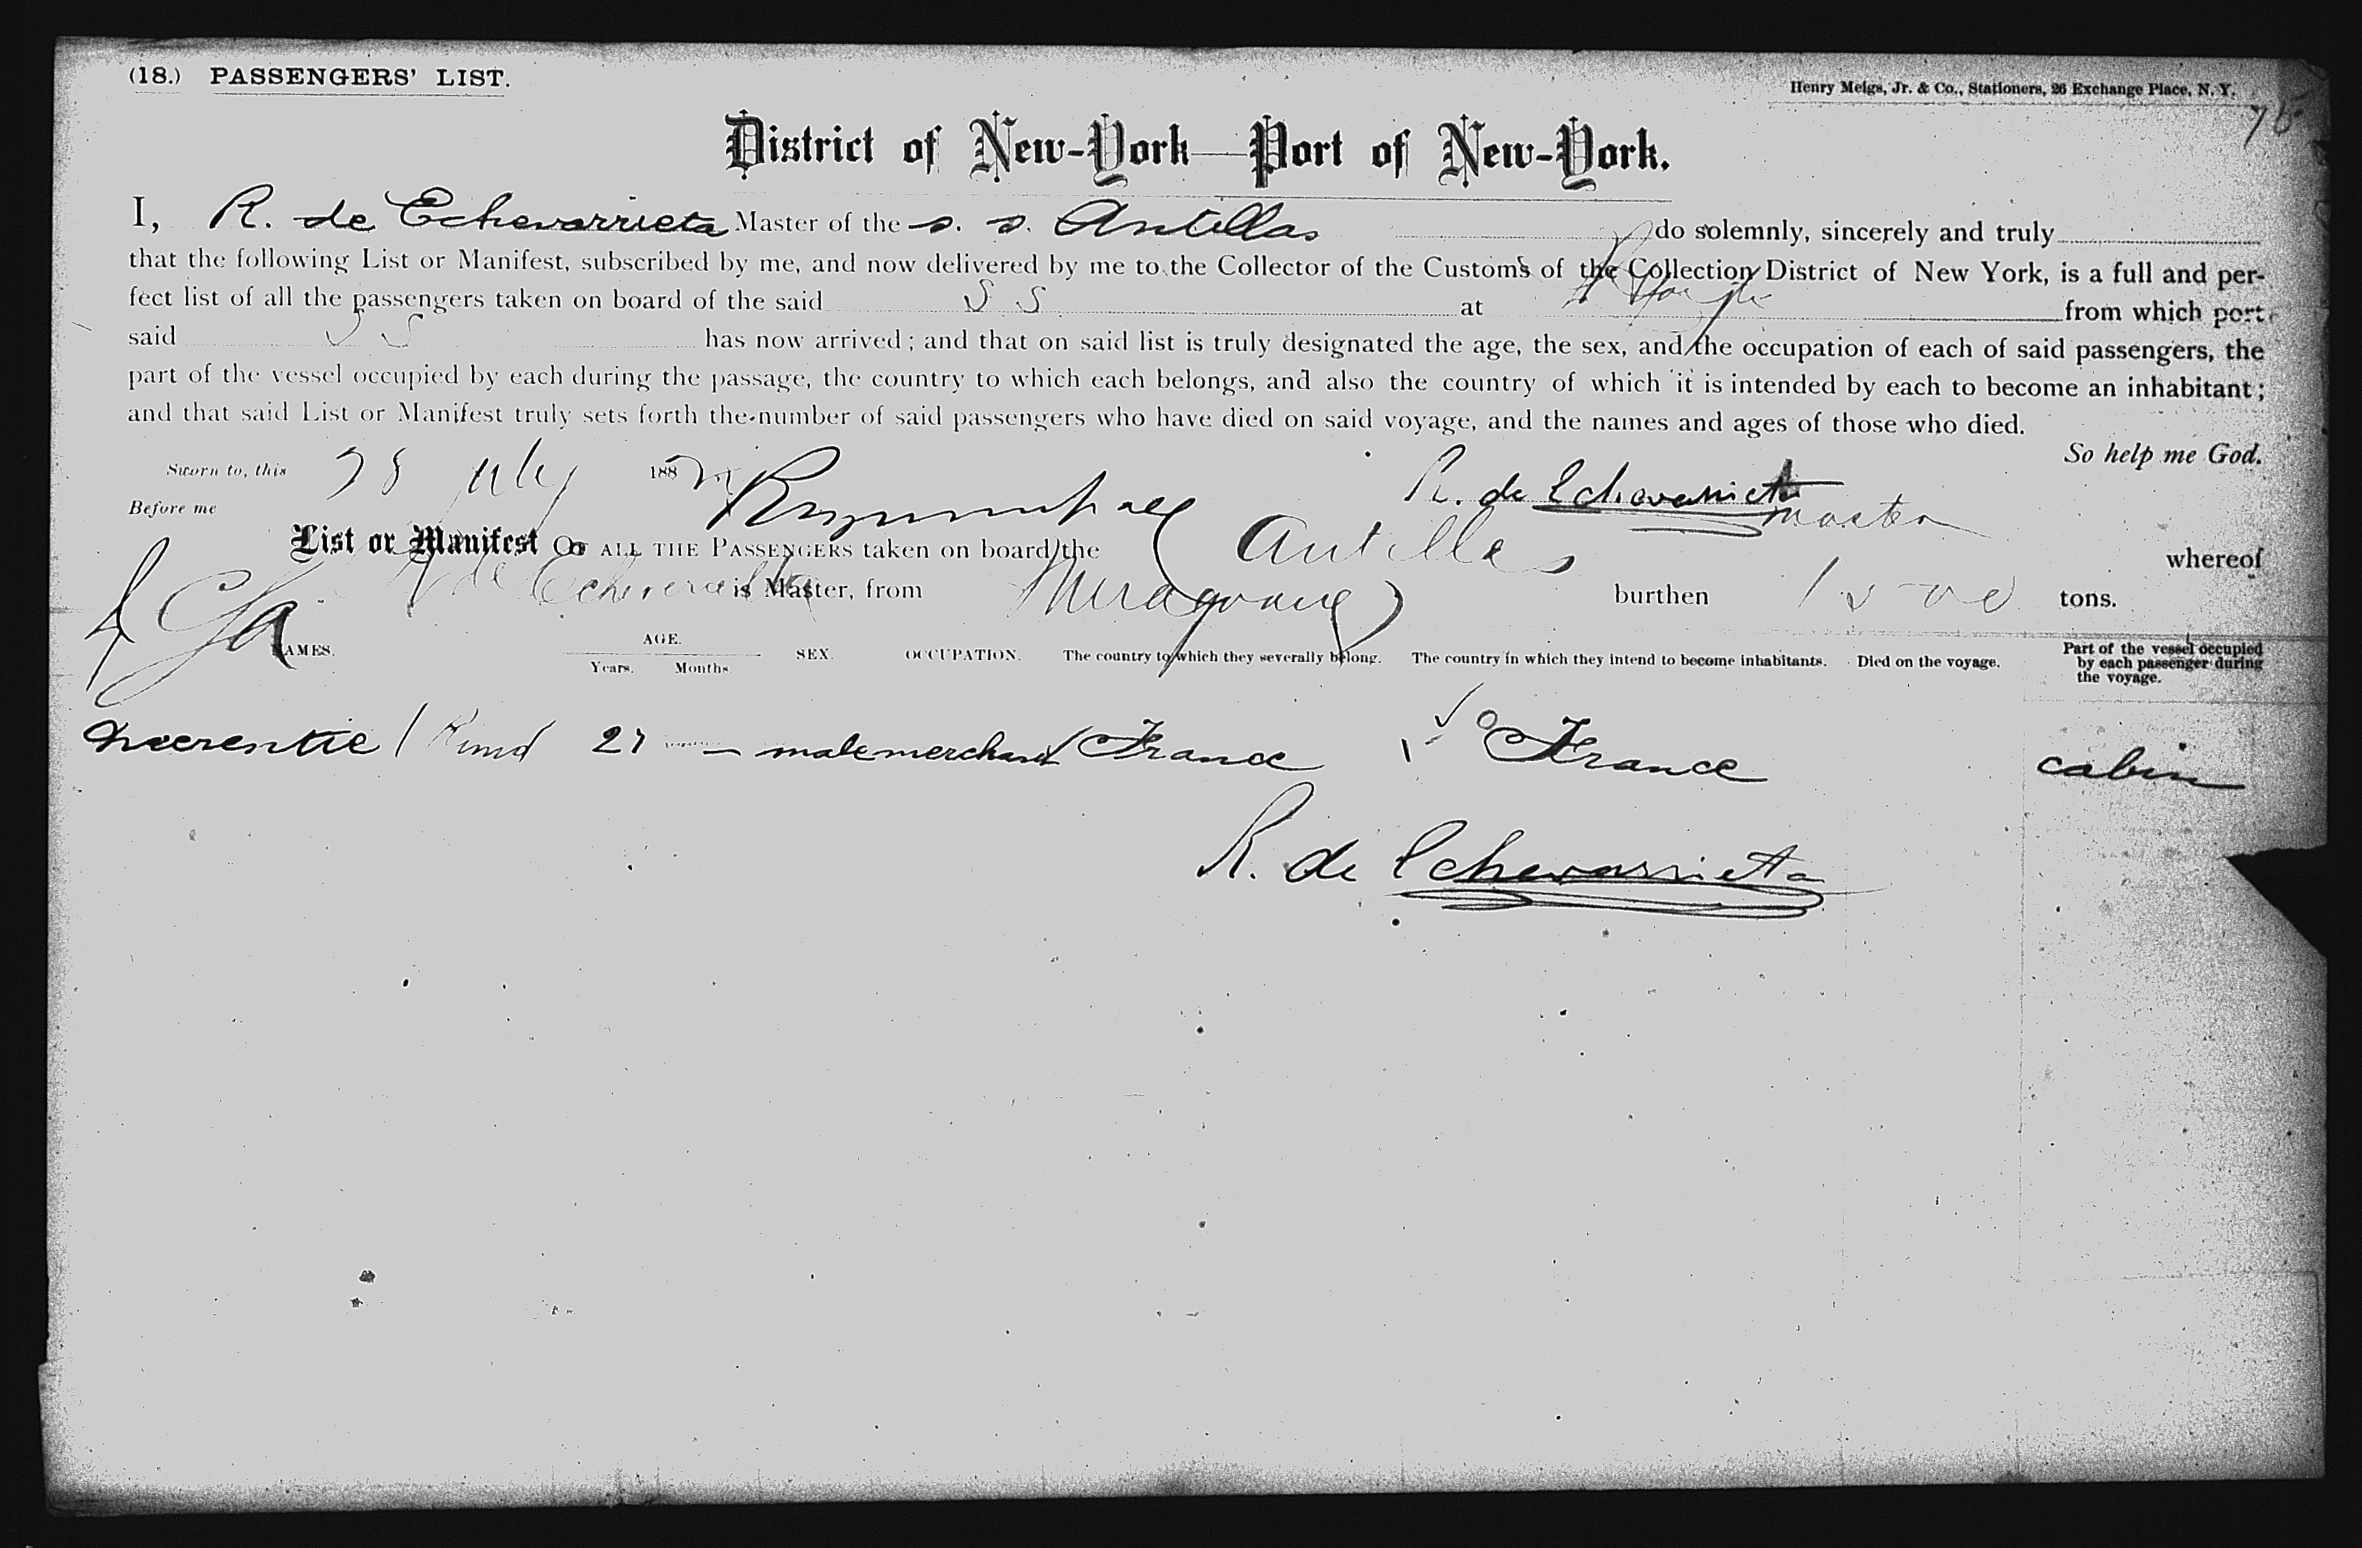 (18.) PASSENGERS' LIST.
Henry Meigs, Jr. & Co., Stationers, 26 Exchange Place, N. Y.
District of New-York—Port of New-York.
I, R. de Echevarrieta Master of the s. s. Antillas do solemnly, sincerely and truly
that the following List or Manifest, subscribed by me, and now delivered by me to the Collector of the Customs of the Collection District of New York, is a full and per-
fect list of all the passengers taken on board of the said S S at from which port
said S S has now arrived; and that on said list is truly designated the age, the sex, and the occupation of each of said passengers, the
part of the vessel occupied by each during the passage, the country to which each belongs, and also the country of which it is intended by each to become an inhabitant;
and that said List or Manifest truly sets forth the number of said passengers who have died on said voyage, and the names and ages of those who died.
So help me God.
Sworn to, this 28 July 188
R. de Echevarrieta
Before me
master
List or Manifest OF ALL THE PASSENGERS taken on board the Antillas whereof
R de Echeverarita is Master, from Miragoane burthen tons.
NAMES. AGE. Years. Months SEX. OCCUPATION. The country to which they severally belong. The country in which they intend to become inhabitants. Died on the voyage. Part of the vessel occupied by each passenger during the voyage.
27 — male merchant France France cabin
R. de Echevarrieta